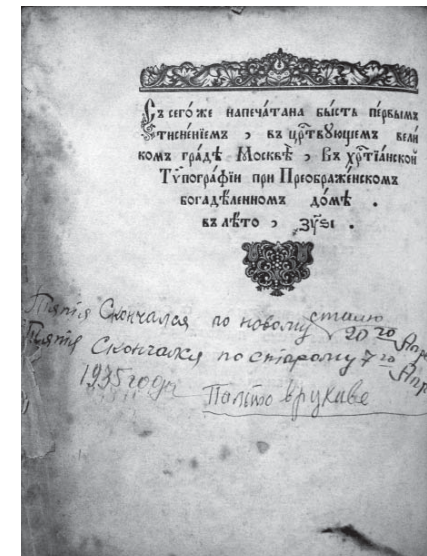 Съ сего́ же напеча́тана бы́сть пе́рвымъ
тисне́нїемъ , въ црⷭ҇твующемъ вели
комъ гра́дѣ Москвѣ̀ , Въ хрⷭ҇тїа́нской
Тѷпогра́фїи при Преображе́нскомъ
богадѣ́ленномъ до́мѣ .
въ лѣ́то , ҂зу҃ѕі .
Тятя Скончался по новому стилю 20 го Апр
Тятя Скончался по старому 7 го Апр
1935 года
Пальто в рукаве